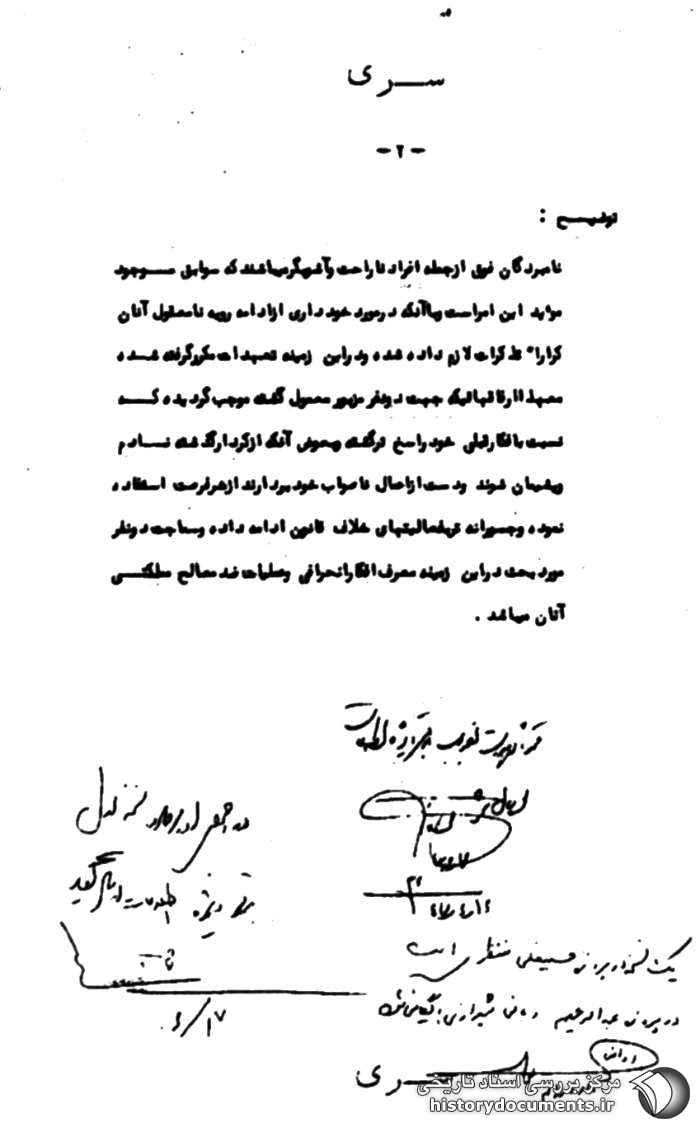 سری
- ۲ -
توضیح :
نامبردگان فوق ازجمله افراد ناراحت وآشوبگر میباشند که سوابق موجود
موید این امراست وباآنکه درمورد خودداری ازادامه رویه نامعقول آنان
کرارا" تذکرات لازم داده شده ودراین زمینه تعهدات مکررگرفته شده
معهذا ارفاقاتیکه جهت دونفر مزبور معمول گشته موجب گردیده که
نسبت بافکارقبلی خودراسخ ترگشته وبعوض آنکه ازکردارگذشته نادم
وپشیمان شوند ودست ازاعمال ناصواب خودبردارند ازهرفرصت استفاده
نموده وجسورانه تربفعالیتهای خلاف قانون ادامه داده وسماجت دونفر
مورد بحث دراین زمینه معرف افکارانحرافی وعملیات ضد مصالح مملکتی
آنان میباشد .
یک نسخه در پرونده حسینعلی منتظری است
در پرونده عبدالرحیم ربانی شیرازی بایگانی شود
۶/۱۷
سری
مرکز بررسی اسناد تاریخی
historydocuments.ir